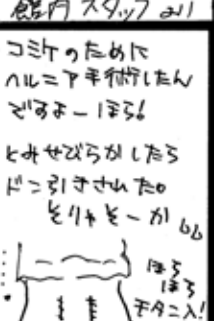 館内スタッフより
コミケのために
ヘルニア手術したん
ですよーほら!
とみせびらかしたら
ドン引きされた。
そりゃそーか
ほら
ほら
モタニ入!